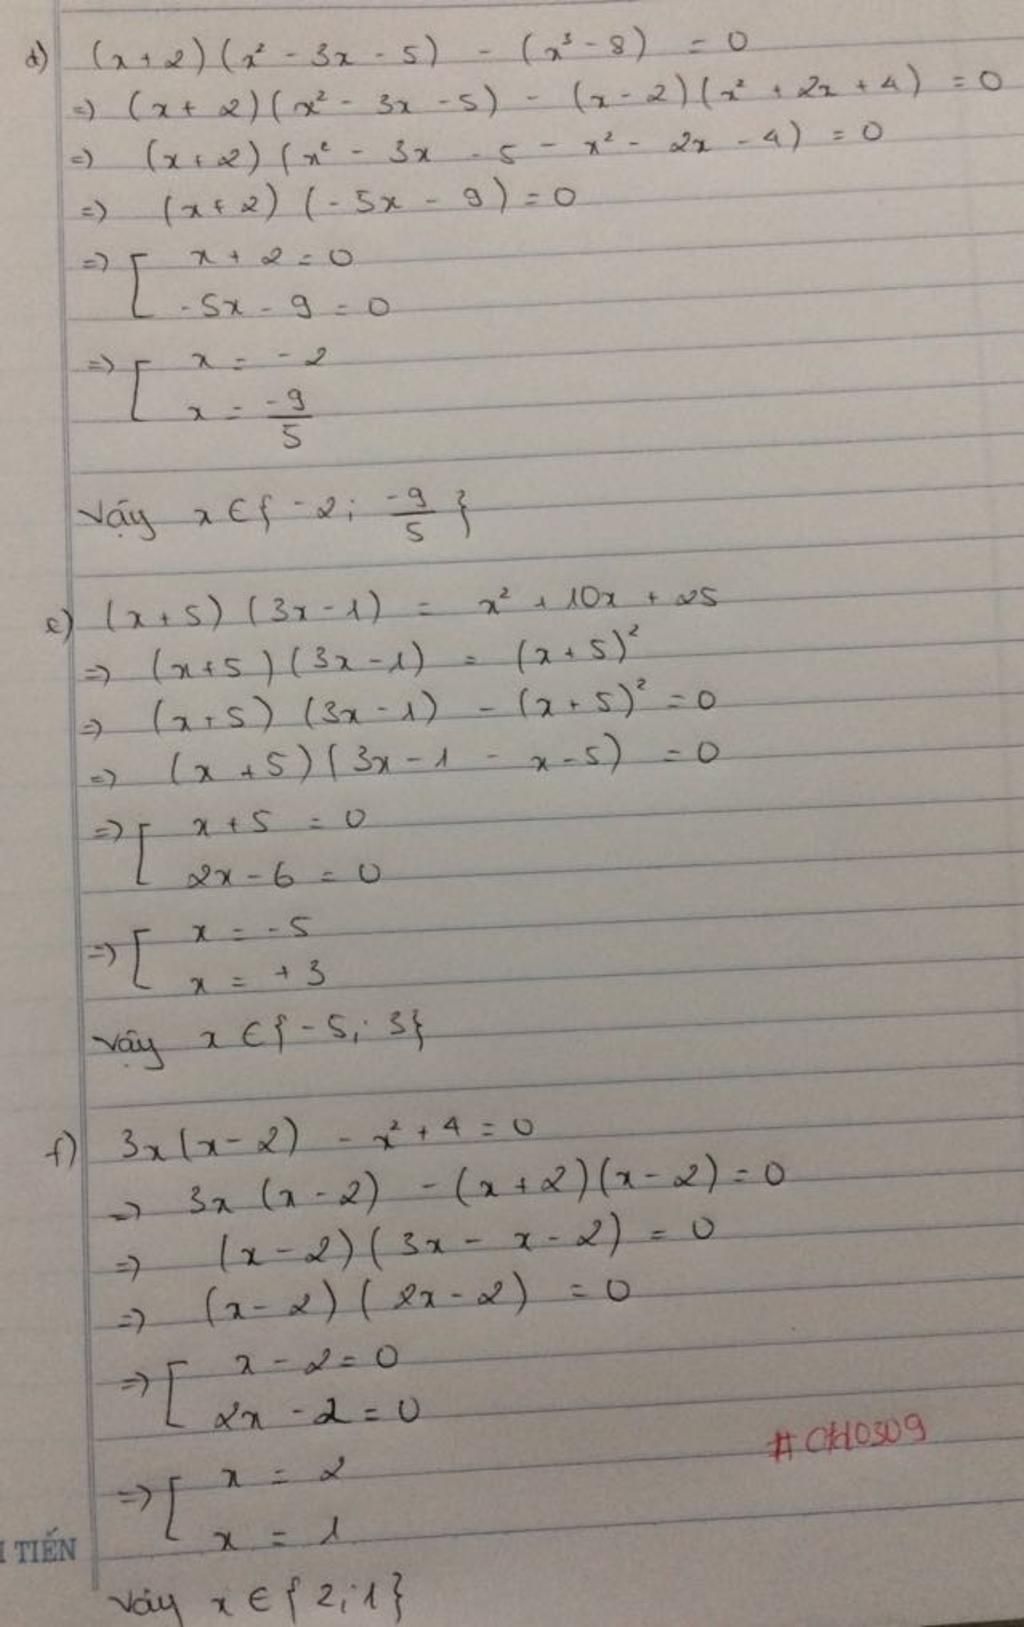 d) (x+2)(x² - 3x - 5) - (x³ - 8) = 0
=> (x+2)(x² - 3x - 5) - (x-2)(x² + 2x + 4) = 0
=> (x+2)(x² - 3x - 5 - x² - 2x - 4) = 0
=> (x+2)(-5x - 9) = 0
=> [ x + 2 = 0
-5x - 9 = 0
=> [ x = -2
x = -9/5
Vậy x ∈ { -2; -9/5 }
e) (x+5)(3x-1) = x² + 10x + 25
=> (x+5)(3x-1) = (x+5)²
=> (x+5)(3x-1) - (x+5)² = 0
=> (x+5)(3x-1 - x-5) = 0
=> [ x+5 = 0
2x-6 = 0
=> [ x = -5
x = +3
Vậy x ∈ {-5; 3}
f) 3x(x-2) - x² + 4 = 0
=> 3x(x-2) - (x+2)(x-2) = 0
=> (x-2)(3x - x - 2) = 0
=> (x-2)(2x-2) = 0
=> [ x - 2 = 0
2x - 2 = 0
#CH0309
=> [ x = 2
x = 1
TIẾN
Vậy x ∈ {2; 1}